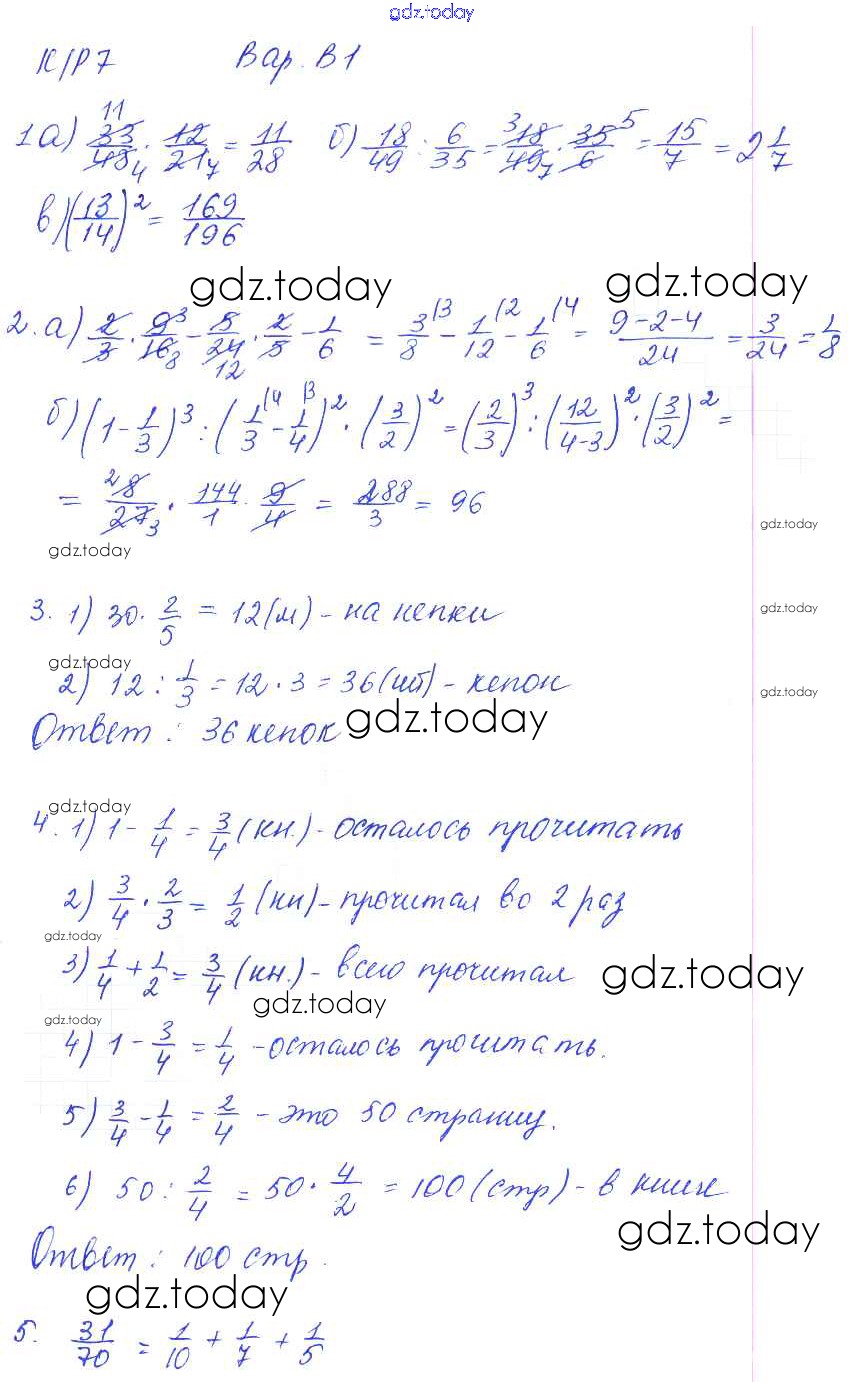 gdz.today
К/Р 7 Вар. В1
1 а) 33/48 · 12/21 = 11/28 б) 18/49 : 6/35 = 18/49 · 35/6 = 15/7 = 2 1/7
в) (13/14)² = 169/196
gdz.today gdz.today
2. а) 2/3 · 9/16 - 5/24 · 2/5 - 1/6 = 3/8 - 1/12 - 1/6 = (9-2-4)/24 = 3/24 = 1/8
б) (1 - 1/3)³ : (1/3 - 1/4)² · (3/2)² = (2/3)³ : (12/4-3)² · (3/2)² =
= 8/27 · 144/1 · 9/4 = 288/3 = 96
gdz.today
gdz.today
3. 1) 30 · 2/5 = 12 (м) - на кепки
gdz.today
gdz.today
2) 12 : 1/3 = 12 · 3 = 36 (шт) - кепок
gdz.today
Ответ : 36 кепок
gdz.today
gdz.today
4. 1) 1 - 1/4 = 3/4 (кн.) - осталось прочитать
2) 3/4 · 2/3 = 1/2 (кн) - прочитал во 2 раз
gdz.today
3) 1/4 + 1/2 = 3/4 (кн.) - всего прочитал
gdz.today
gdz.today
gdz.today
4) 1 - 3/4 = 1/4 - осталось прочитать.
5) 3/4 - 1/4 = 2/4 - это 50 страниц.
6) 50 : 2/4 = 50 · 4/2 = 100 (стр) - в книге
gdz.today
Ответ : 100 стр.
gdz.today
5. 31/70 = 1/10 + 1/7 + 1/5